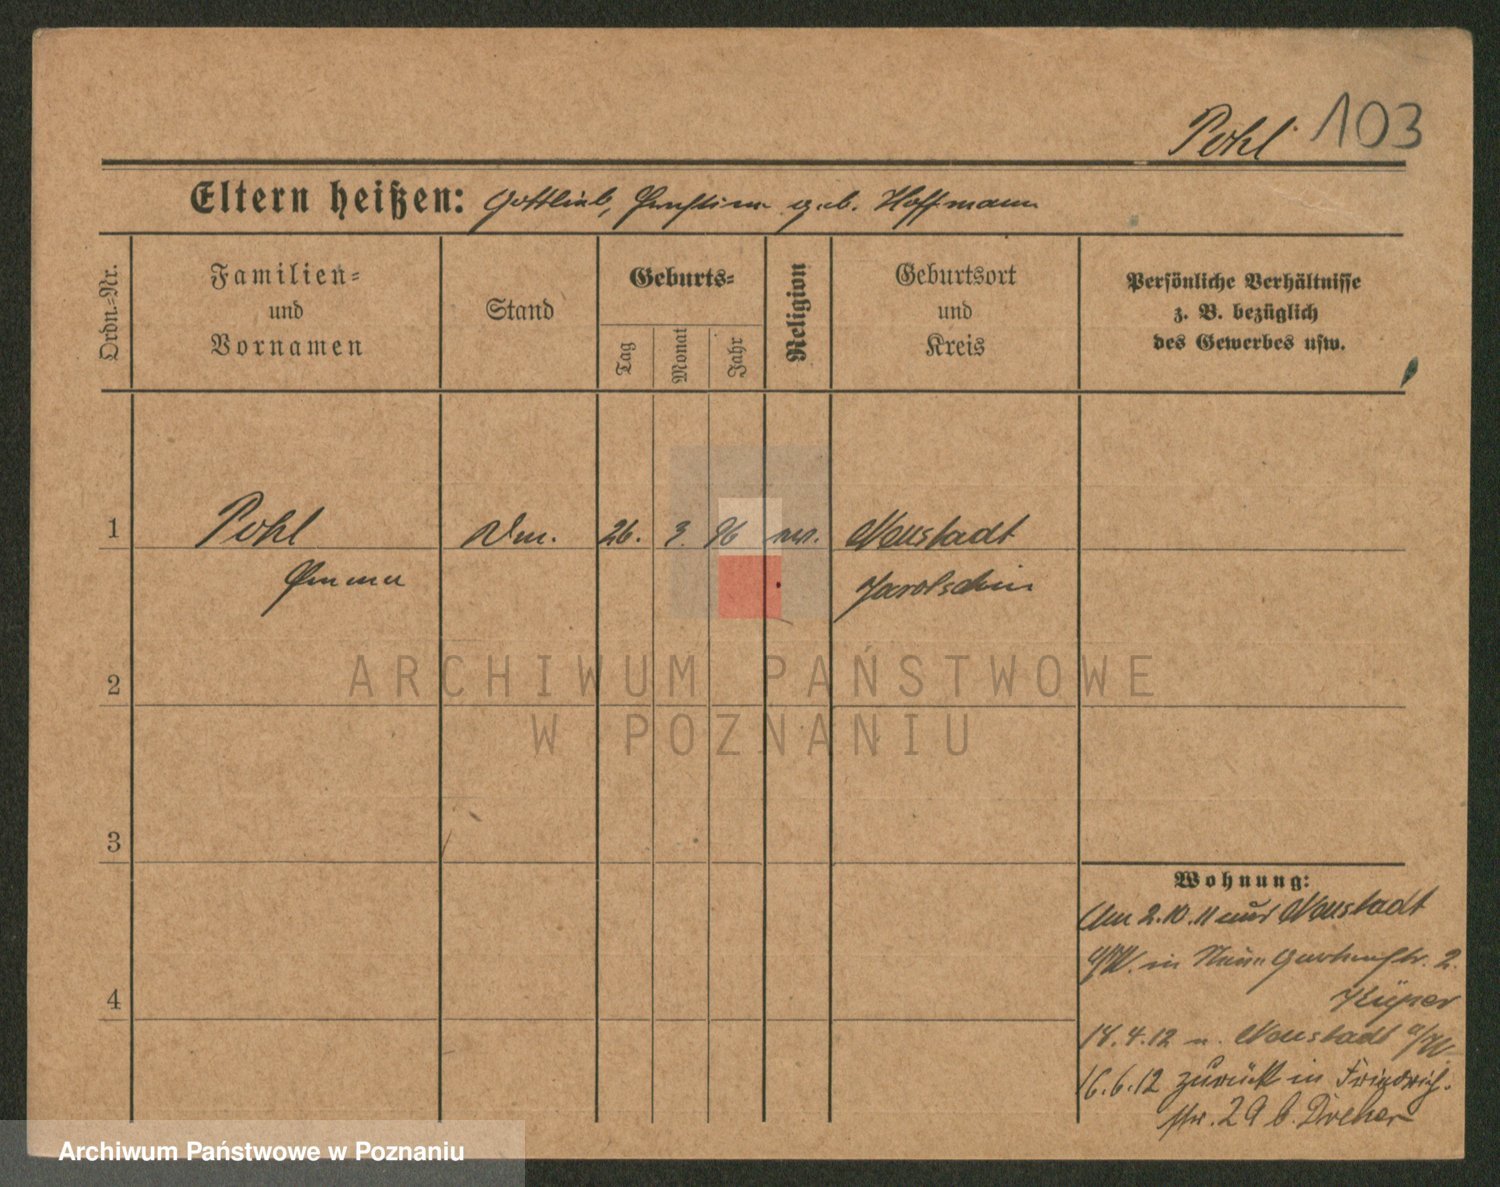 Pohl 103
Eltern heißen: Gottlieb, Ernstine geb. Hoffmann
Ordn.-Nr.
Familien-
und
Vornamen
Stand
Geburts-
Tag
Monat
Jahr
Religion
Geburtsort
und
Kreis
Persönliche Verhältnisse
z. B. bezüglich
des Gewerbes usw.
1 Pohl 26. 3. 96 Neustadt
Emma Jarotschin
2
ARCHIWUM PAŃSTWOWE
W POZNANIU
3
4
Wohnung:
Am 2.10.11 aus Neustadt
a/W. in Gartenstr. 2.
18.4.12 n. Neustadt a/W.
16.6.12 zurück in Friedrich-
str. 29 b. Dreher
Archiwum Państwowe w Poznaniu